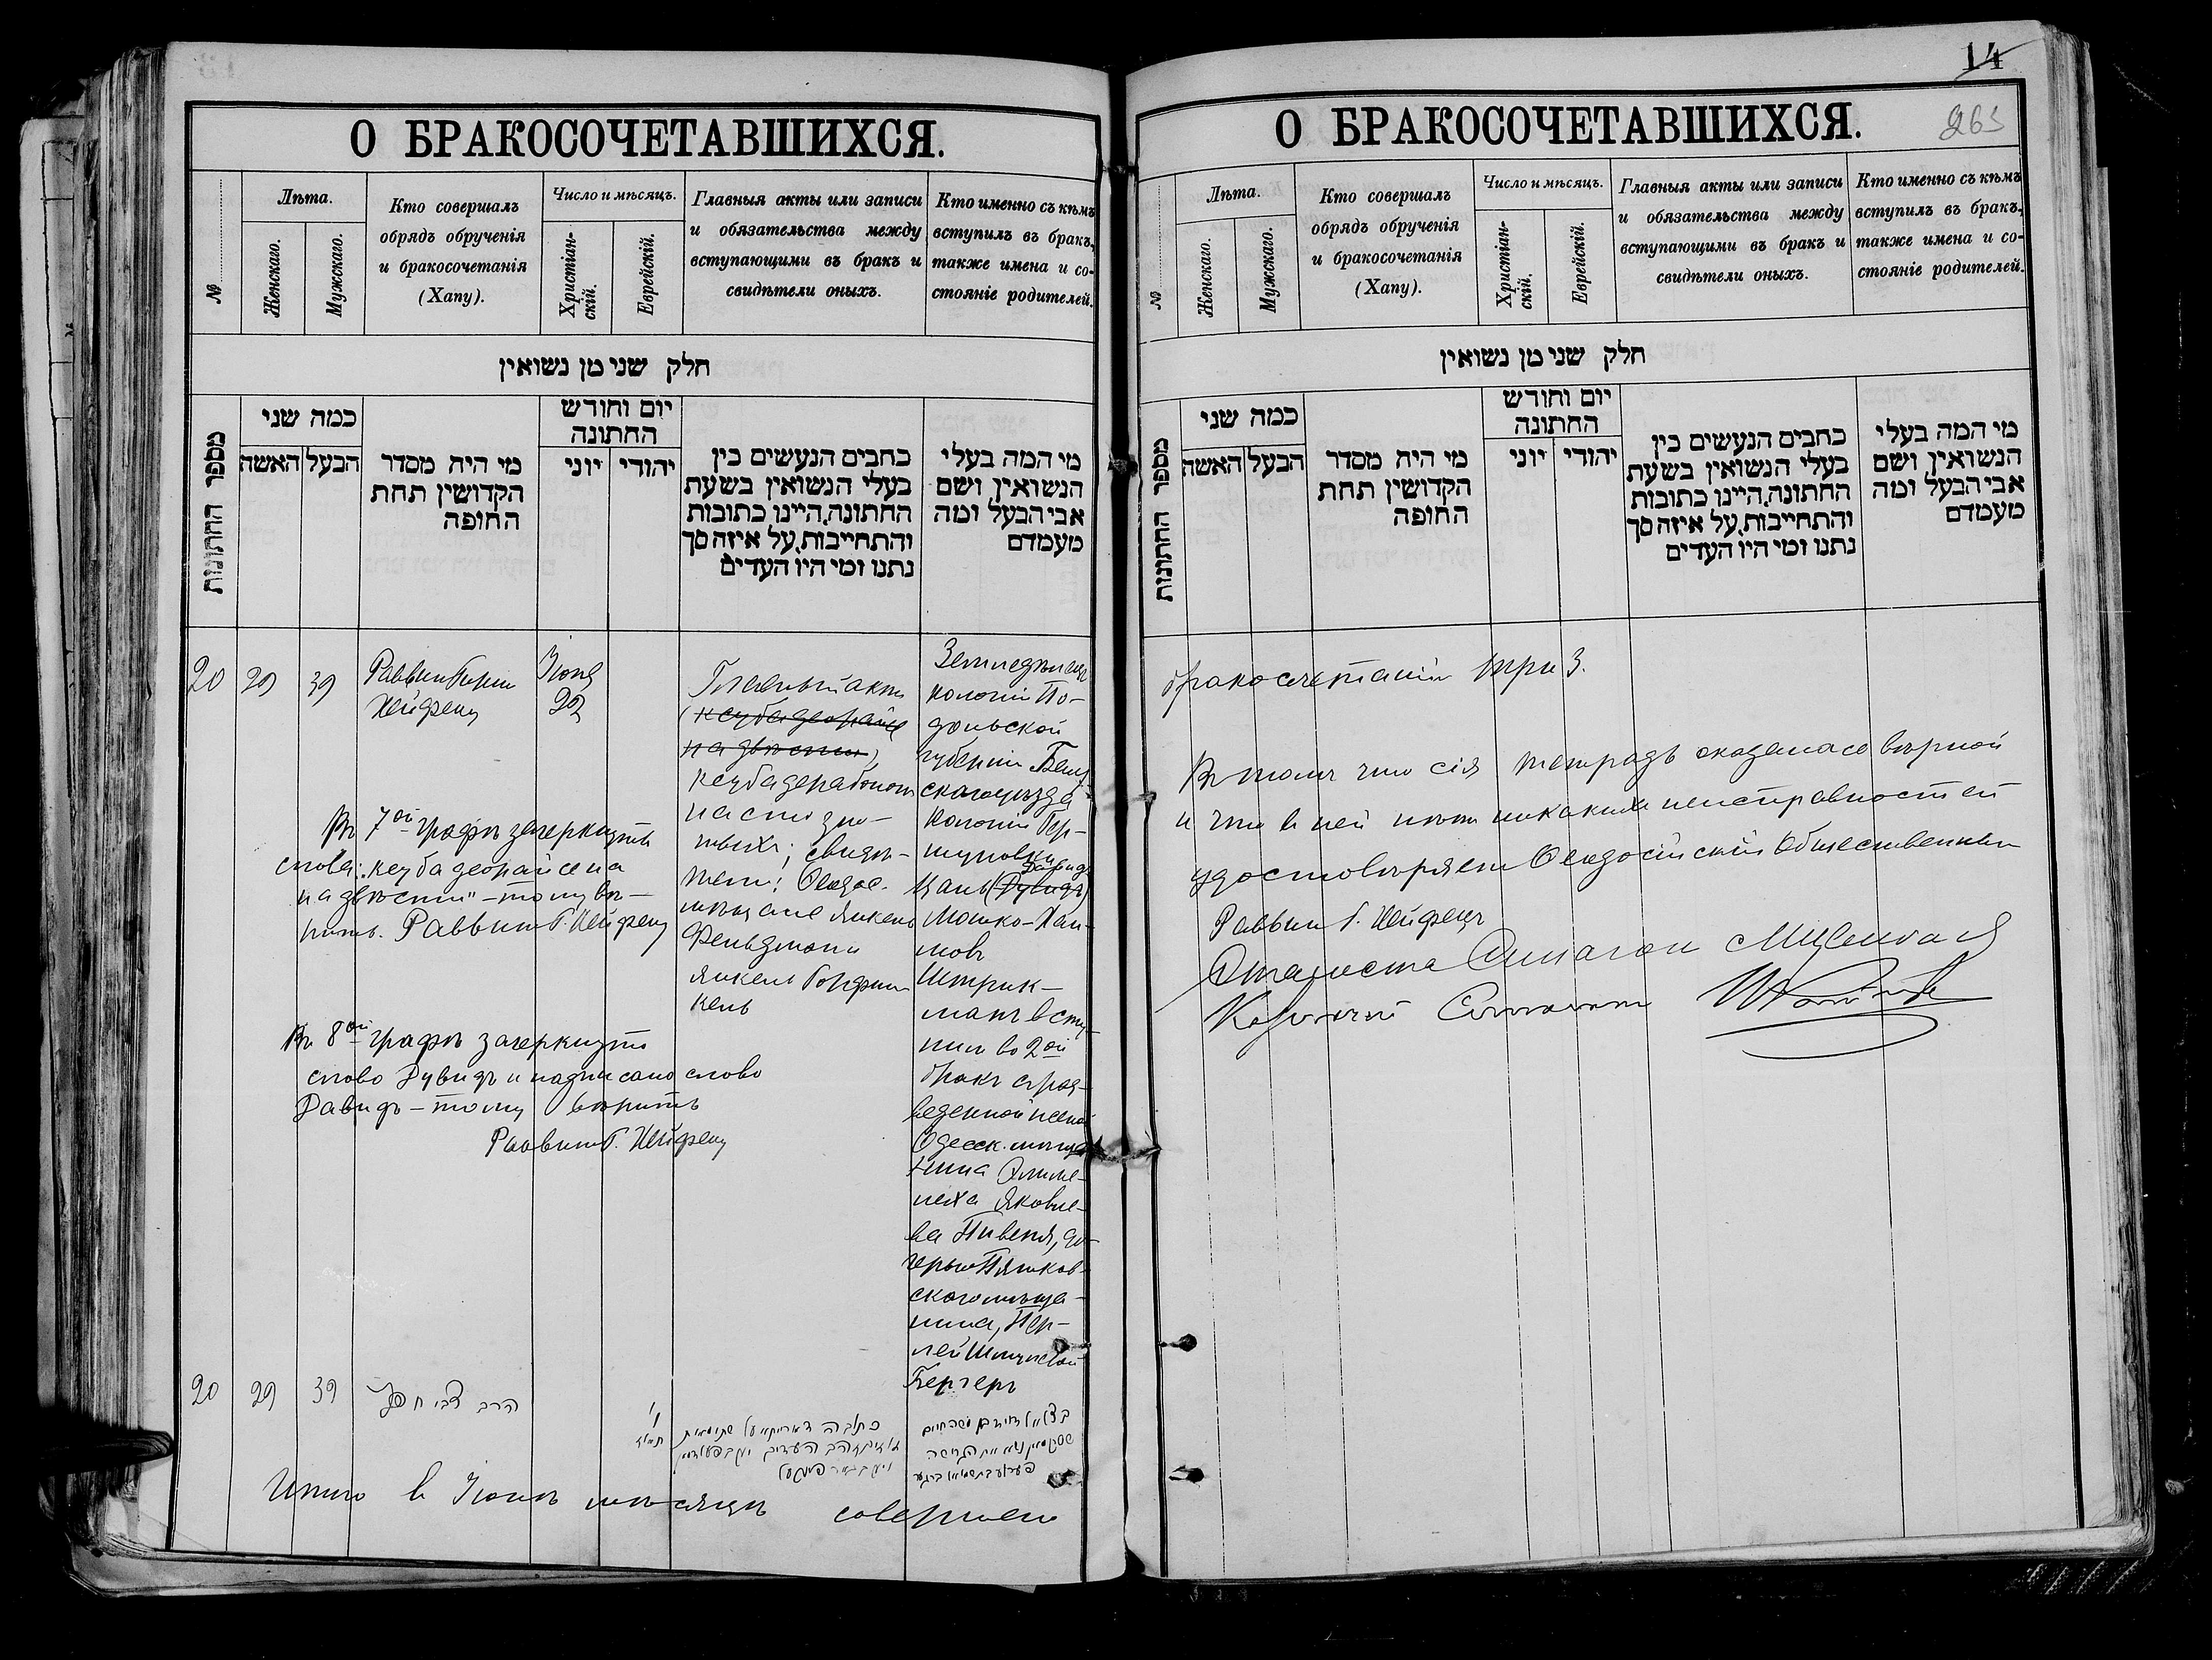 О БРАКОСОЧЕТАВШИХСЯ.
№
Лѣта.
Женскаго.
Мужскаго.
Кто совершалъ
обрядъ обрученія
и бракосочетанія
(Хапу).
Число и мѣсяцъ.
Христіан-
скій.
Еврейскій.
Главныя акты или записи
и обязательства между
вступающими въ бракъ и
свидѣтели оныхъ.
Кто именно съ кѣмъ
вступилъ въ бракъ,
также имена и со-
стояніе родителей.
חלק שני מן נשואין
מספר החתונות
כמה שני
האשה
הבעל
מי היה מסדר
הקדושין תחת
החופה
יום וחודש
החתונה
יוני
יהודי
כתבים הנעשים בין
בעלי הנשואין בשעת
החתונה, היינו כתובות
והתחייבות, על איזה סך
נתנו ומי היו העדים
מי המה בעלי
הנשואין ושם
אבי הבעל ומה
מעמדם
20
29
39
Раввинъ Гирш
Хейфецъ
Іюня
22
Главный актъ
(кеуба деорайсе
на двѣсти)
кеуба дерабонон
на сто зло-
тыхъ; свидѣ-
тели: Ѳеодос.
мѣщане Янкель
Фельдман и
Янкель Горфин-
кель
Земледѣлецъ
колоніи По-
дольской
губерніи Балт-
скаго уѣзда
колоніи Гер-
шуновки
Давидъ
Цаль (Рувидъ)
Мошко-Хаи-
мовъ
Штрик-
манъ всту-
пилъ во 2ой
бракъ с раз-
веденной женой
Одесск. мѣща-
нина Элиме-
леха Яковле-
ва Пивеня, до-
черью Пяшков-
скаго мѣща-
нина, Пер-
лей Шмулевой
Бергеръ
Въ 7ой графѣ зачеркнуты
слова: „кеуба деорайсе на
на двѣсти" – тому вѣ-
рить. Раввинъ Г. Хейфецъ
Въ 8ой графѣ зачеркнуто
слово Рувидъ и надписано слово
Давидъ – тому вѣрить
Раввинъ Г. Хейфецъ
20
29
39
הרב צבי חפץ
Итого въ Іюнѣ мѣсяцѣ совершено
14
263
О БРАКОСОЧЕТАВШИХСЯ.
№
Лѣта.
Женскаго.
Мужскаго.
Кто совершалъ
обрядъ обрученія
и бракосочетанія
(Хапу).
Число и мѣсяцъ.
Христіан-
скій.
Еврейскій.
Главныя акты или записи
и обязательства между
вступающими въ бракъ и
свидѣтели оныхъ.
Кто именно съ кѣмъ
вступилъ въ бракъ,
также имена и со-
стояніе родителей.
חלק שני מן נשואין
מספר החתונות
כמה שני
האשה
הבעל
מי היה מסדר
הקדושין תחת
החופה
יום וחודש
החתונה
יוני
יהודי
כתבים הנעשים בין
בעלי הנשואין בשעת
החתונה, היינו כתובות
והתחייבות, על איזה סך
נתנו ומי היו העדים
מי המה בעלי
הנשואין ושם
אבי הבעל ומה
מעמדם
бракосочетаній три 3.
Въ томъ что сія тетрадь оказалась вѣрной
и что в ней нѣтъ никакихъ неисправностей
удостовѣряетъ Ѳеодосійскій Общественный
Раввинъ Г. Хейфецъ
Староста Синагоги